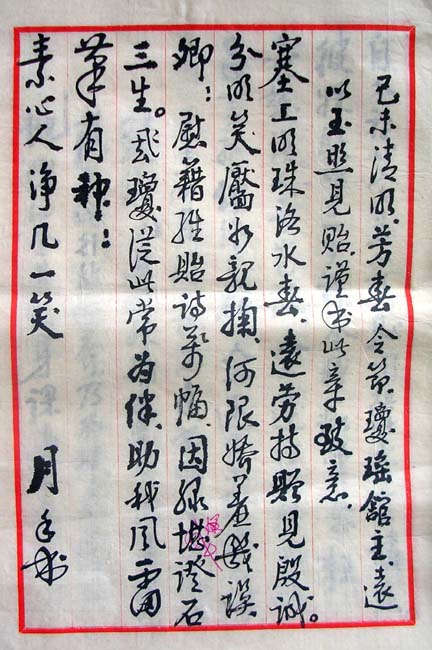 己未清明、芳春令節、瓊瑤館主遠
以玉照見貽、謹書此章致意、
塞上明珠洛水春、遠勞持贈見殷誠。
分明笑靨如親掬、何限嬌羞誤
卿；慰籍貽詩萬幅、因緣堪證石
三生。瓊從此常為伴、助我風雷
筆有神；
素心人淨几一笑 月書